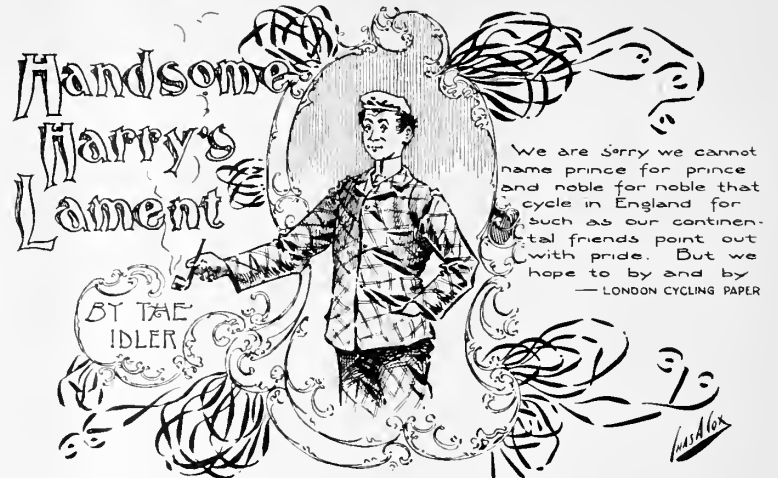 Handsome
Harry's
Lament
BY THE
IDLER
We are sorry we cannot
name prince for prince
and noble for noble that
cycle in England for
such as our continen-
tal friends point out
with pride. But we
hope to by and by
— LONDON CYCLING PAPER
CHAS A COX